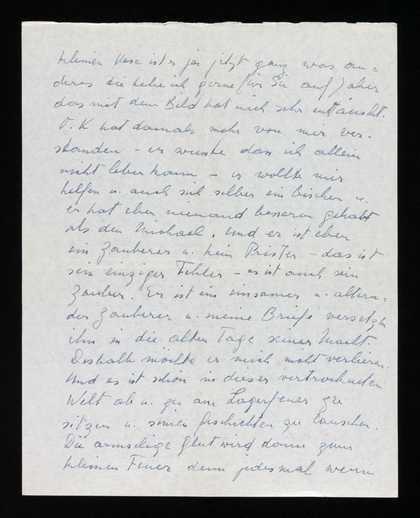 kleinen Vase ist es ja jetzt ganz was an-
deres die hebe ich gerne für Sie auf) aber
das mit dem Bild hat mich sehr enttäuscht.
O.K hat damals mehr von mir ver-
standen – er wusste dass ich allein
nicht leben kann – er wollte mir
helfen u. auch sich selber ein bischen u.
er hat eben niemand besseren gehabt
als den Michael. Und er ist eben
ein Zauberer u. kein Priester – das ist
sein einziger Fehler – es ist auch sein
Zauber. Er ist ein einsamer u. altern-
der Zauberer u. meine Briefe versetzen
ihn in die alten Tage seiner Macht.
Deshalb möchte er mich nicht verlieren.
Und es ist schön in dieser vertrockneten
Welt ab u. zu am Lagerfeuer zu
sitzen u. seinen Geschichten zu lauschen.
Die armselige Glut wird dann zum
kleinen Feuer denn jedesmal wenn